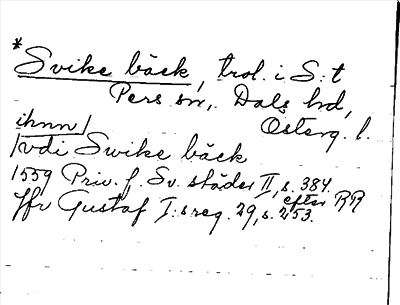 * Svike bäck, trol. i S:t
Pers sn, Dals hd,
Österg. l.
ihnn/
/vdi Swike bäck
1559 Priv. f. Sv. städer II, s. 384.
efter RR
Jfr Gustaf I:s reg. 29, s. 253.